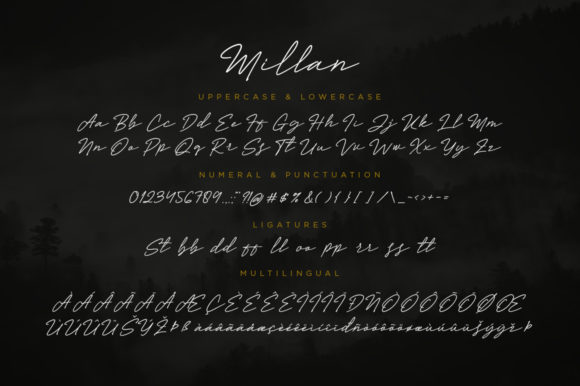 Millan
UPPERCASE & LOWERCASE
Aa Bb Cc Dd Ee Ff Gg Hh Ii Jj Kk Ll Mm
Nn Oo Pp Qq Rr Ss Tt Uu Vv Ww Xx Yy Zz
NUMERAL & PUNCTUATION
0123456789...:;"?!@#$%&(){}[]/\_-<>+-=
LIGATURES
St bb dd ff ll oo pp rr ss tt
MULTILINGUAL
ÀÁÂÃÄÅÆÇÈÉÊËÌÍÎÏÐÑÒÓÔÕÖØŒ
ÙÚÛÜŠŸŽÞßàáâãäåæçèéêëìíîïðñòóôõöøœùúûüšÿžþ